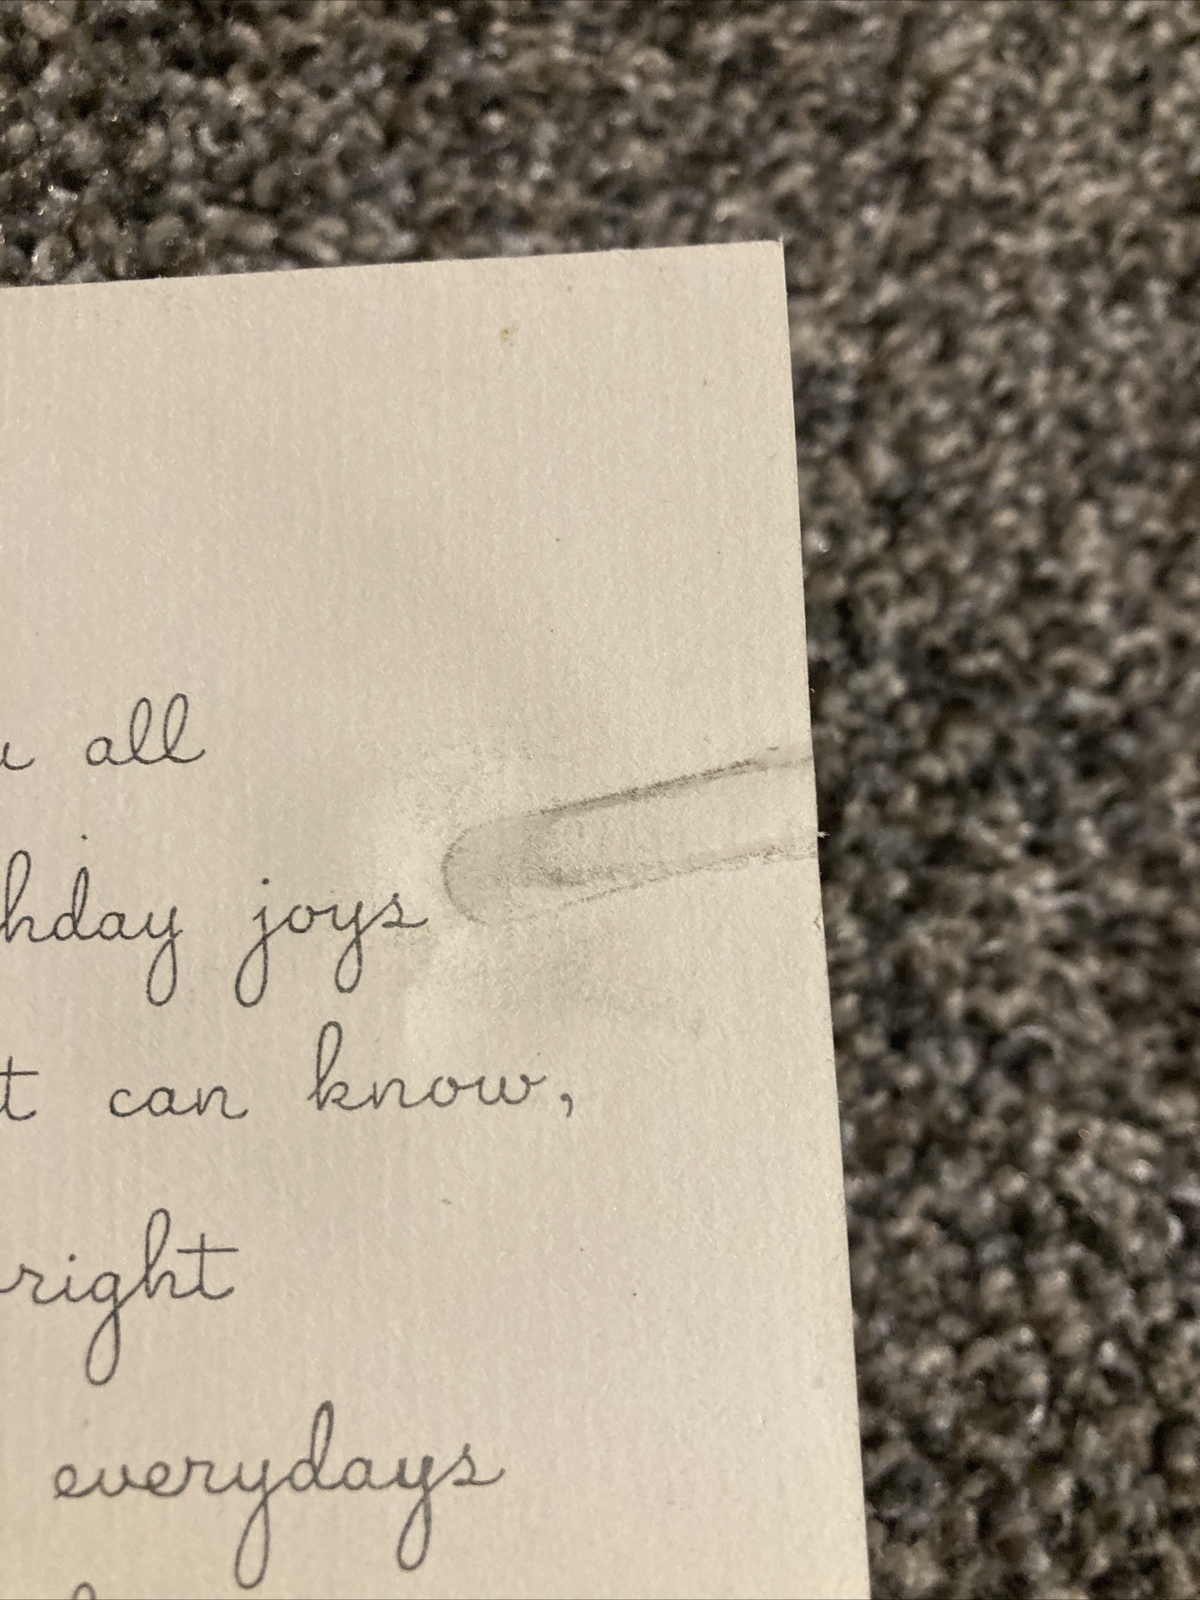 all
hday joys
t can know,
right
everydays